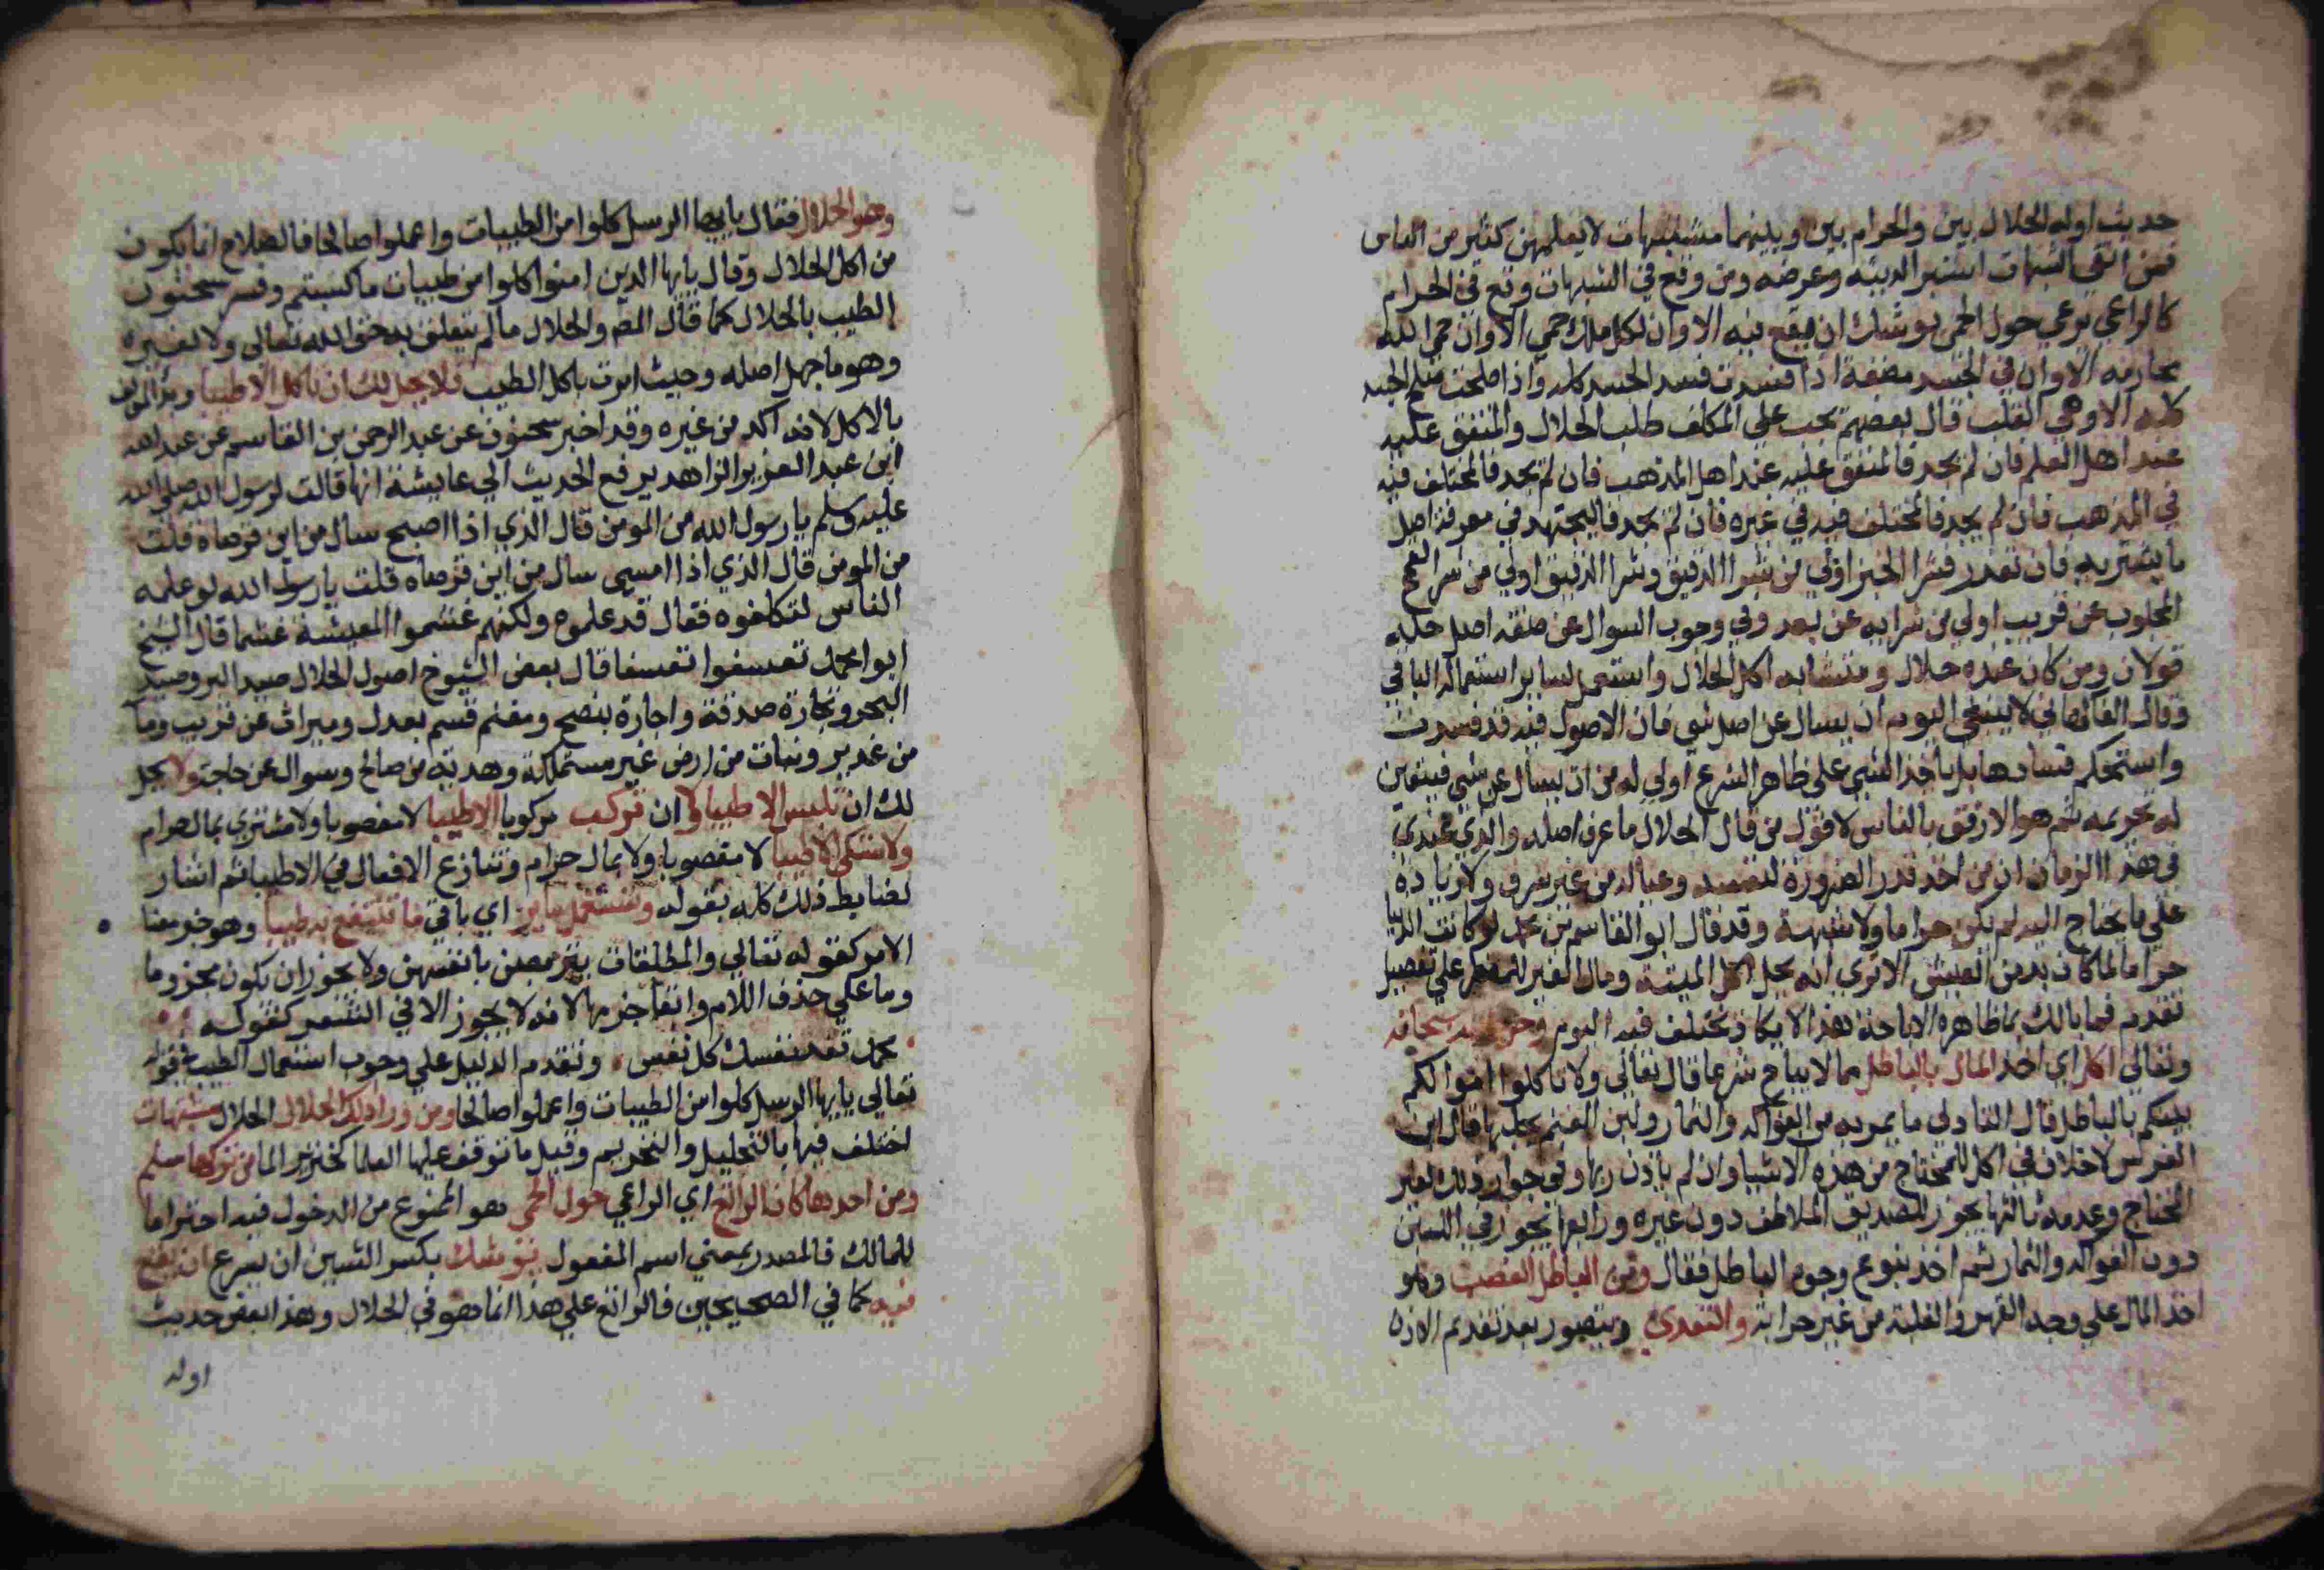 حديث اوله الحلال بين والحرام بين وبينهما مشتبهات لا يعلمهن كثير من الناس
فمن اتقى الشبهات استبرا لدينه وعرضه ومن وقع في الشبهات وقع في الحرام
كالراعي يرعى حول الحمى يوشك ان يقع فيه الا وان لكل ملك حمى الا وان حمى الله
محارمه الا وان في الجسد مضغة اذا فسدت فسد الجسد كله واذا صلحت صلح الجسد
كله الا وهي القلب قال بعضهم يجب على المكلف طلب الحلال والمتفق عليه
عند اهل العلم فان لم يجد فالمتفق عليه عند اهل المذهب فان لم يجد فالمختلف فيه
في المذهب فان لم يجد فالمختلف فيه في غيره فان لم يجد فاليجتهد في معرفة اصل
ما يشتريه فان تعذر فشرا الخبز اولي من شرا الدقيق وشرا الدقيق اولي من شرا القمح
المجلوب عن قريب اولي من شرايه عن بعد وفي وجوب السوال عن صفة اصل حليه
قولان ومن كان عنده حلال ومتشابه اكل الحلال واستعمل لساير استعماله الباقي
وقال الفاكهاني لا ينبغي اليوم ان يسال عن اصل شي فان الاصول فيه قد فسدت
واستحكم فسادها بل ياخذ الشي على ظاهر الشرع اولي له من ان يسال عن شي فيتعين
له تحريمه ثم هو الارفق بالناس لا قول من قال الحلال ما عرف اصله والذي عندي
في هذا الزمان ان من اخذ قدر الضرورة لنفسه وعياله من غير سرف ولا زيادة
علي ما يحتاج اليه لم يكن حراما ولا شبهة وقد قال ابو القاسم بن محمد لو كانت الدنيا
حراما لما كان بد من العيش الا ترى انه يحل اكل الميتة ومال الغير للمضطر علي تفصيل
تقدم فما بالك بما ظاهره الاباحة هذا لا يكاد يختلف فيه اليوم وحرم الله سبحانه
وتعالى اكل اي اخذ المال بالباطل مما لا يباح شرعا قال تعالى ولا تاكلوا اموالكم
بينكم بالباطل قال القادلي ما يمر به من الفواكه والثمار ولبن الغنم يحلبها قال ابن
الفرس لا خلاف في اكل المحتاج من هذه الاشيا وان لم ياذن ربها وفي جواز ذلك لغير
المحتاج وعدمه ثالثها يجوز للصديق الملاطف دون غيره ورابعها يجوز في اللبن
دون الفواكه والثمار ثم اخذ ينوع وجوه الباطل فقال ومن الباطل الغصب وهو
اخذ المال علي وجه القهر والغلبة من غير حرابة والتعدي ويتصور بعد تقديم الاذن
وهو الحلال فقال يايها الرسل كلوا من الطيبات واعملوا صالحا فالصلاح انما يكون
من اكل الحلال وقال يايها الذين امنوا كلوا من طيبات ما كسبتم وفسر سحنون
الطيب بالحلال كما قال المص والحلال ما لم يتعلق به حق الله تعالى ولا لغيره
وهو ما جهل اصله وحيث امرت باكل الطيب فلا يحل لك ان تاكل الا طيبا
بالاكل لانه اكد من غيره وقد اخبر سحنون عن عبد الرحمن بن القاسم عن عبد الله
ابن عبد العزيز الزاهد يرفع الحديث الي عايشة انها قالت لرسول الله صلى الله
عليه وسلم يا رسول الله من المومن قال الذي اذا اصبح سال من اين قرصاه قلت
من المومن قال الذي اذا امسى سال من اين قرصاه قلت يا رسول الله لو علمه
الناس لتكلفوه فقال قد علموه ولكنهم غشموا المعيشة غشما قال الشيخ
ابو محمد تعسفوا تعسفا قال بعض الشيوخ اصول الحلال صيد البر وصيد
البحر وتجارة صدقة واجارة بنصح ومغنم قسم بعدل وميراث عن قريب وما
من غدير ونبات من ارض غير مستملكة وهدية من صالح وسوال عن حاجة ولا يحل
لك ان تلبس الا طيبا ولا ان تركب مركوبا الا طيبا لا مغصوبا ولا مشتري بمال حرام
ولا تسكن الا طيبا لا مغصوبا ولا بمال حرام وتنازع الافعال في الا طيبا ثم اشار
لضابط ذلك كله بقوله وتستعمل ساير اي باقي ما تنتفع به طيبا وهو خبر معنا
الامر كقوله تعالي والمطلقات يتربصن بانفسهن ولا يجوز ان يكون مجزوما
وما علي حذف اللام وابقا جزمها لانه لا يجوز الا في الشعر كقوله
محمد تفد نفسك كل نفس وتقدم الدليل علي وجوب استعمال الطيب في قوله
تعالي يايها الرسل كلوا من الطيبات واعملوا صالحا ومن ورا ذلك الحلال الحلال مشتبهات
اختلف فيها بالتحليل والتحريم وقيل ما توقف عليها العلما كخنزير الما من تركها سلم
ومن اخذها كان كالراتع اي الراعي حول الحمى هو الممنوع من الدخول فيه احتراما
للمالك فالمصدر بمعني اسم المفعول يوشك بكسر الشين ان يسرع ان يقع
فيه كما في الصحيحين فالراتع علي هذا انما هو في الحلال وهذا بعض حديث
اوله